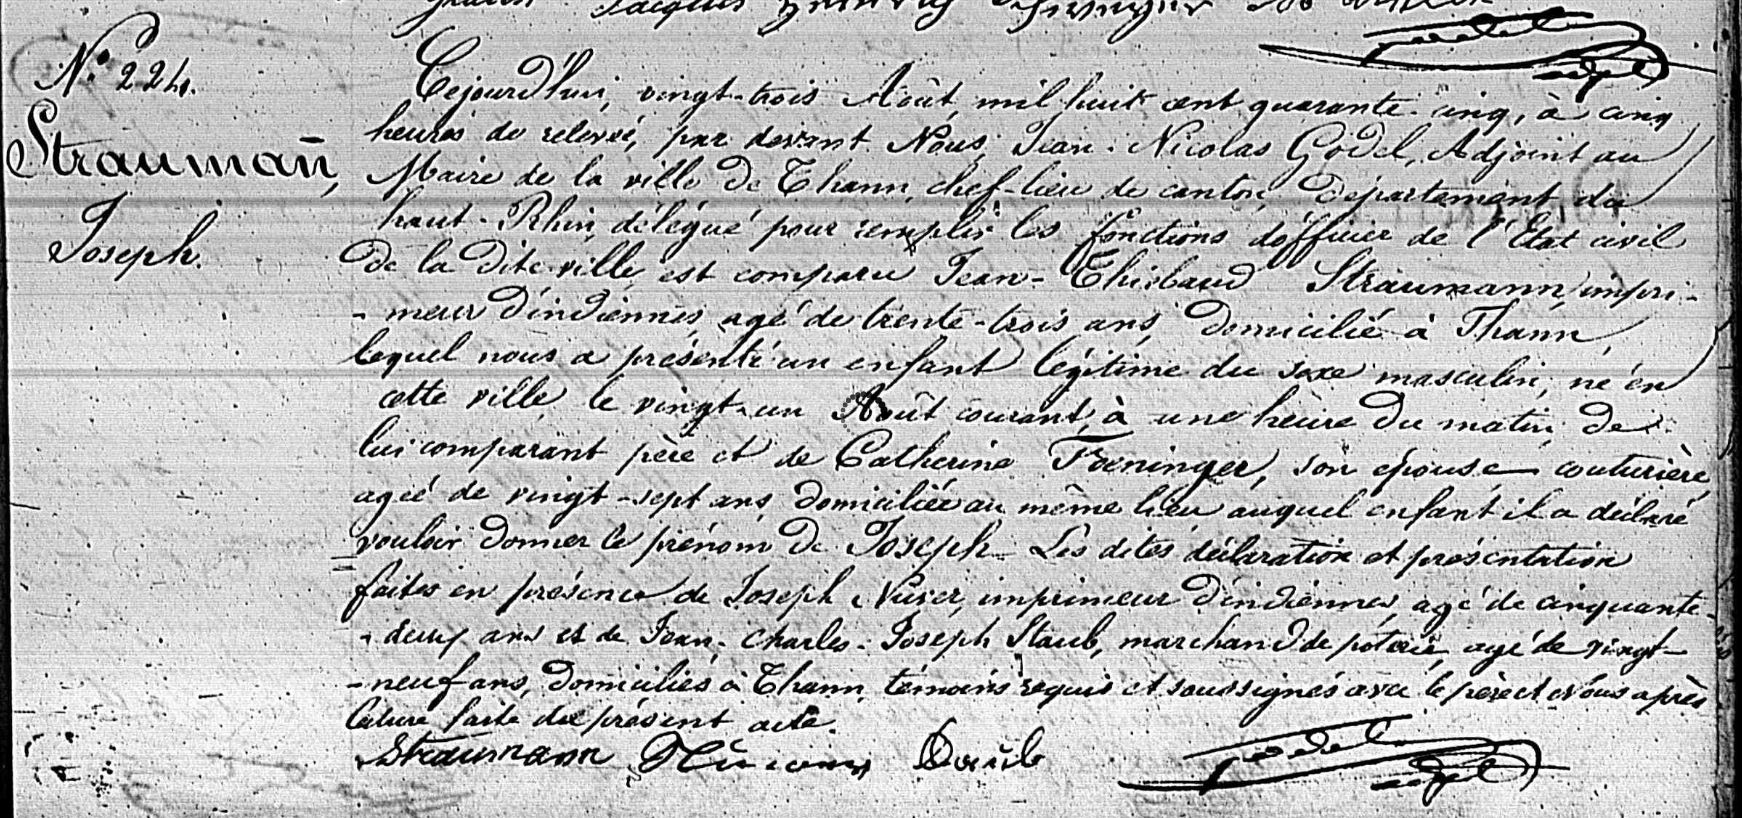 Jacques
N° 224.
Straumañ,
Joseph.
Cejourd'hui, vingt-trois Août, mil huit cent quarante-cinq, à cinq
heures de relevée, par devant Nous, Jean-Nicolas Godel, Adjoint au
Maire de la ville de Thann, chef-lieu de canton, Département du
haut-Rhin, délégué pour remplir les fonctions d'officier de l'Etat civil
de la dite ville, est comparu Jean-Thiébaud Straumann, impri-
-meur d'indiennes, agé de trente-trois ans, domicilié à Thann,
lequel nous a présenté un enfant légitime du sexe masculin, né en
cette ville, le vingt-un Août courant, à une heure du matin, de
lui comparant père et de Catherine Foeninger, son épouse, couturière,
agée de vingt-sept ans, domiciliée au même lieu auquel enfant il a déclaré
vouloir donner le prénom de Joseph. Les dites déclaration et présentation
faites en présence de Joseph imprimeur d'indiennes, agé de cinquante-
-deux ans et de Jean-Charles-Joseph Staub, marchand de poterie, agé de vingt-
-neuf ans, domiciliés à Thann, témoins requis et soussignés avec le père et Nous après
lecture faite du présent acte.
Straumann Godel
adjt